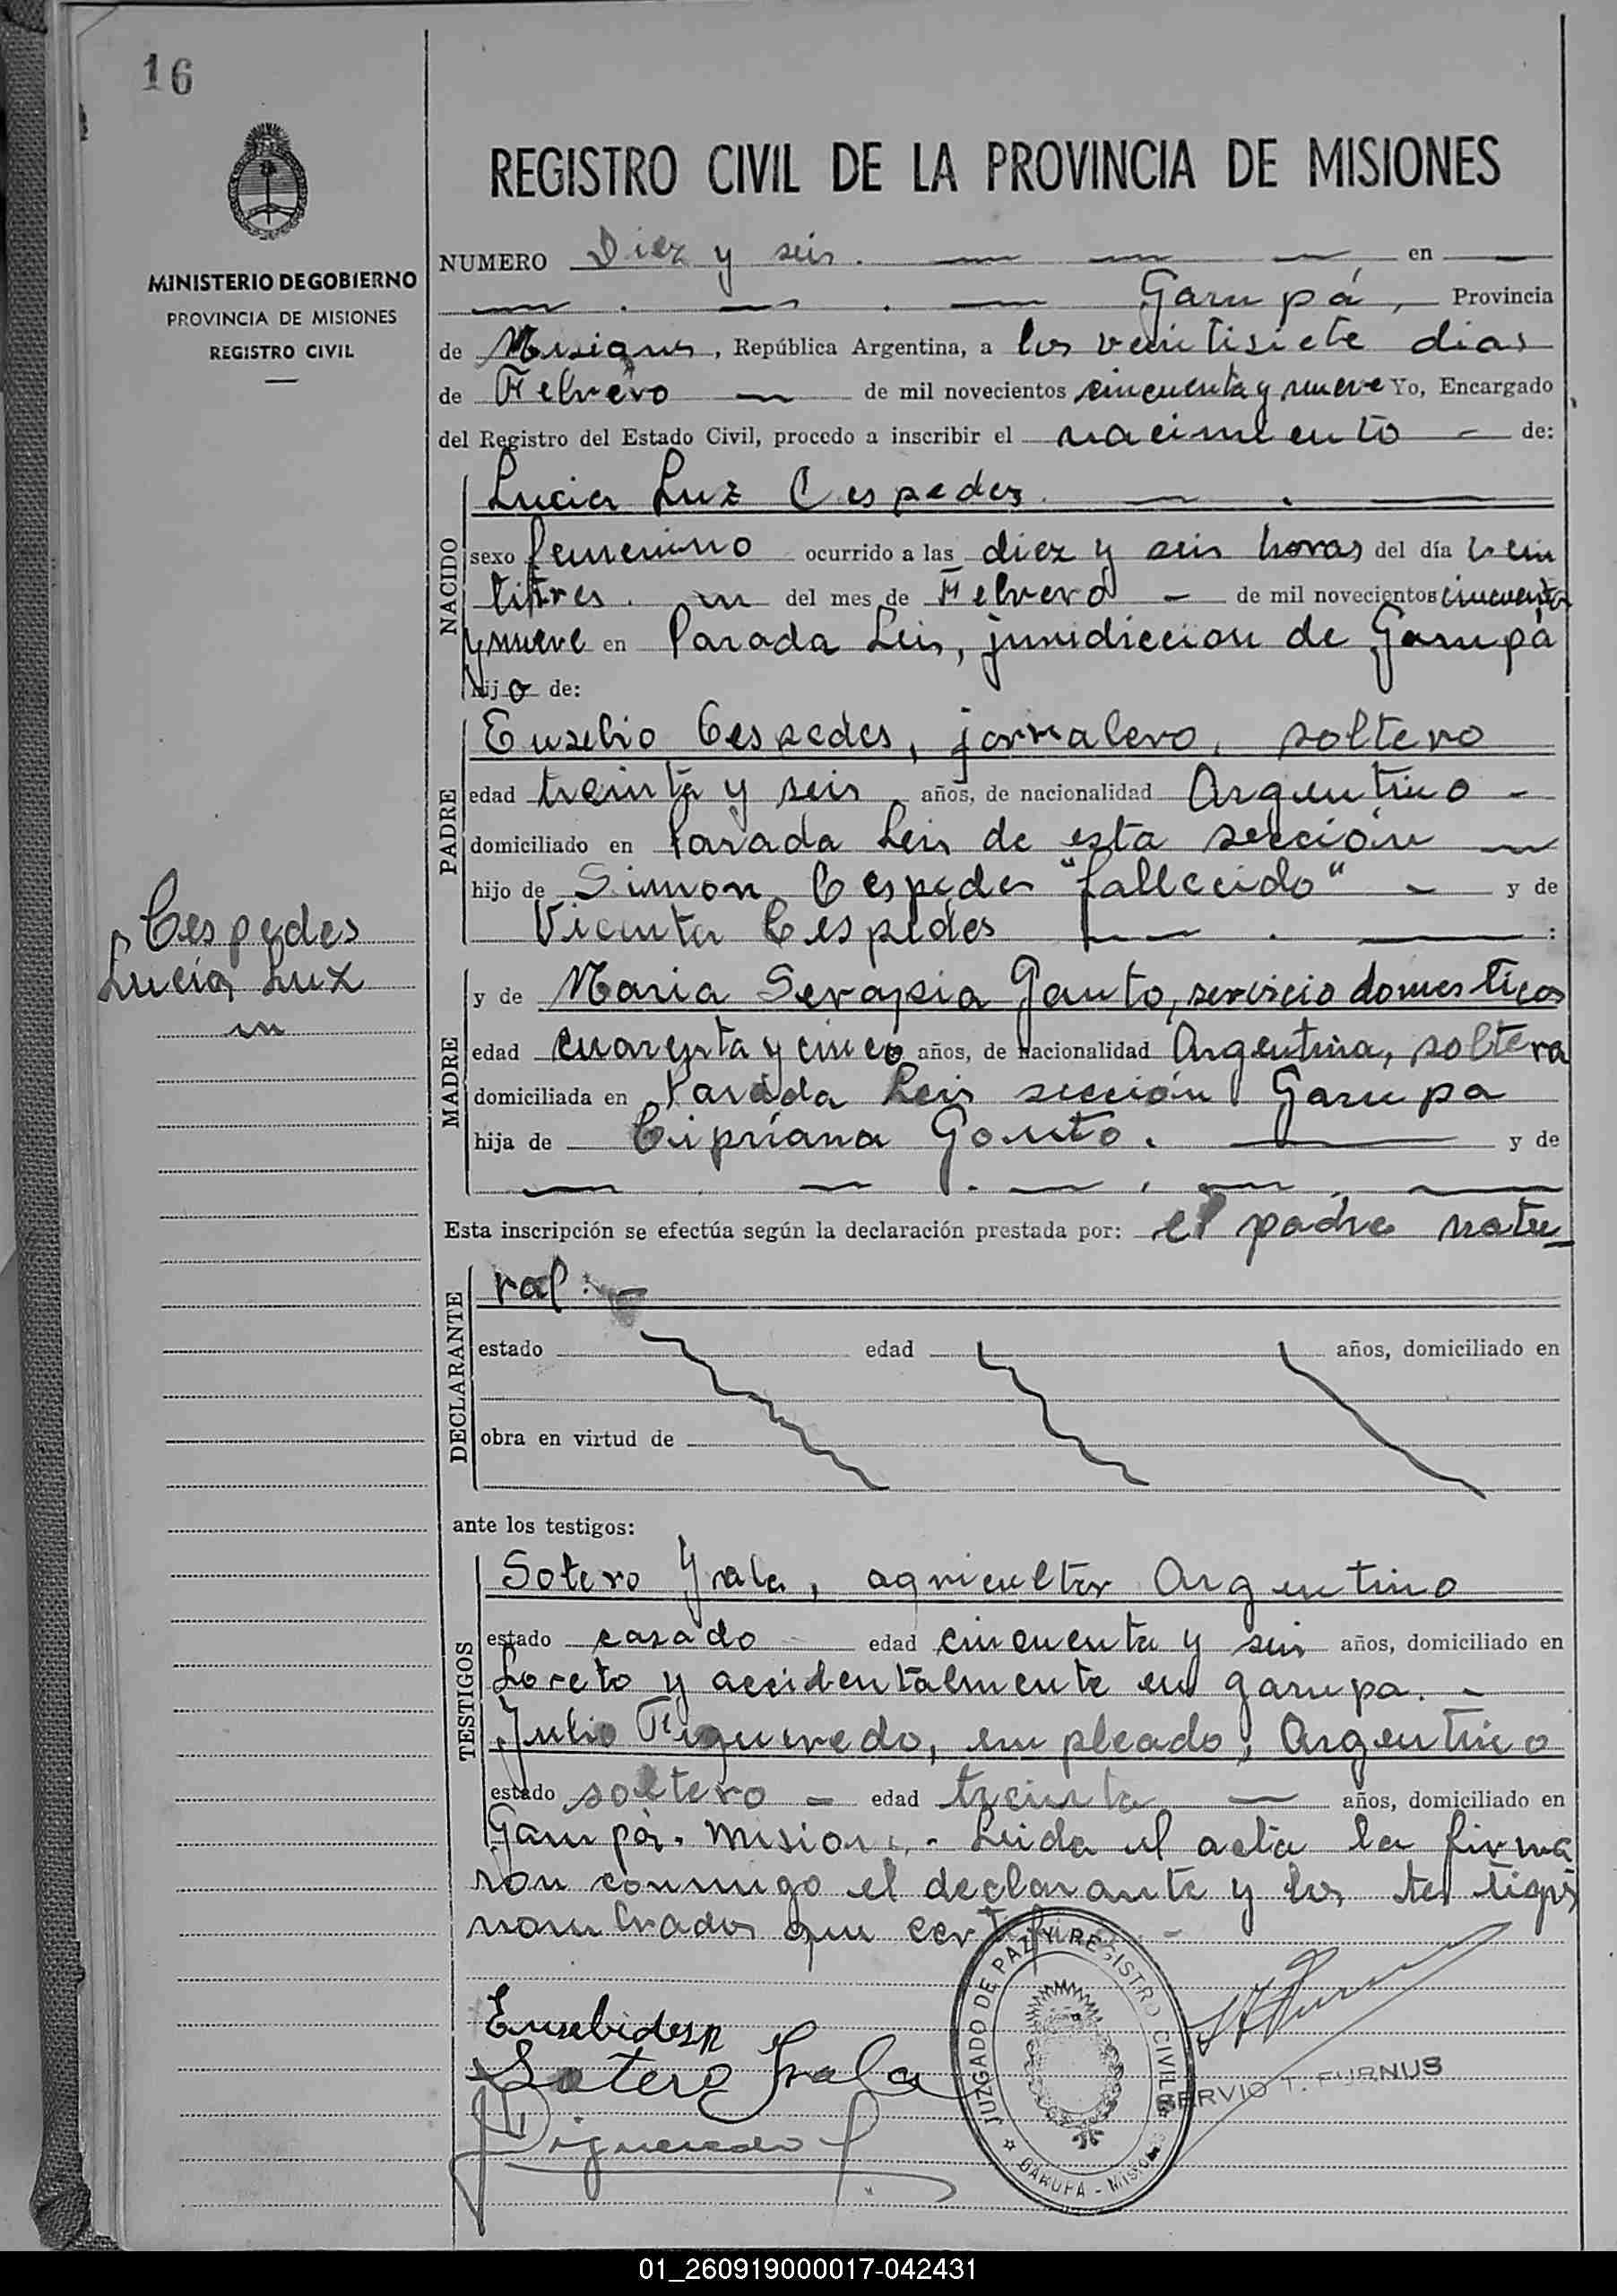 16
REGISTRO CIVIL DE LA PROVINCIA DE MISIONES
MINISTERIO DE GOBIERNO
PROVINCIA DE MISIONES
REGISTRO CIVIL
NUMERO Diez y seis. en
Garupá, Provincia
de Misiones, República Argentina, a los veintisiete dias
de Febrero de mil novecientos cincuenta y nueve Yo, Encargado
del Registro del Estado Civil, procedo a inscribir el nacimiento de:
NACIDO
Lucia Luz Cespedes.
sexo femenino ocurrido a las diez y seis horas del día vein
titres. del mes de Febrero de mil novecientos cincuenta
y nueve en Parada Leis, jurisdiccion de Garupá
hijo de:
PADRE
Eusebio Cespedes, jornalero, soltero
edad treinta y seis años, de nacionalidad Argentino
domiciliado en Parada Leis de esta sección
hijo de Simon Cespedes "fallecido" y de
Vicenta Cespedes
Cespedes
Lucia Luz
MADRE
y de Maria Serapia Gauto, servicio domesticos
edad cuarenta y cinco años, de nacionalidad Argentina, soltera
domiciliada en Parada Leis sección Garupa
hija de Cipriana Gauto. y de
Esta inscripción se efectúa según la declaración prestada por: el padre natu-
DECLARANTE
ral.
estado edad años, domiciliado en
obra en virtud de
ante los testigos:
TESTIGOS
Sotero Yrala, agricultor Argentino
estado casado edad cincuenta y seis años, domiciliado en
Loreto y accidentalmente en garupa.
Julio Figueredo, empleado, Argentino
estado soltero edad treinta años, domiciliado en
Garupá. Misiones.- Leida el acta la firma
ron conmigo el declarante y los testigos
nombrados que certifico
Sotero Irala
Figueredo
JUZGADO DE PAZ Y REGISTRO CIVIL
GARUPA - Misiones
SERVIO T. FURNUS
01_260919000017-042431